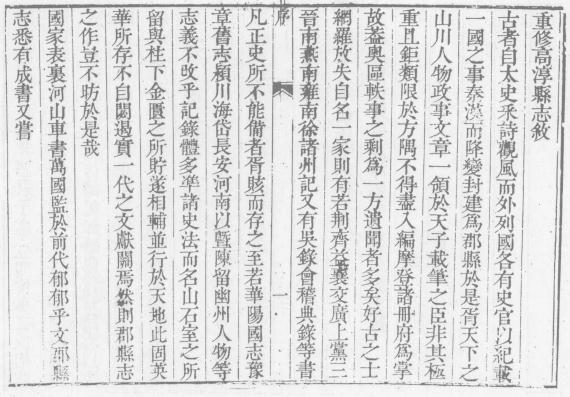 重修高淳縣志敘
古者自太史釆詩觀風而外列國各有史官以紀載
一國之事秦漢而降變封建為郡縣於是胥天下之
山川人物政事文章一領於天子載筆之臣非其極
重且鉅類限於方隅不得盡入編摩登諸冊府為掌
故葢奧區軼事之剩為一方遺聞者多矣好古之士
網羅放失自名一家則有若荆齊益襄交廣上黨三
晉南燕南雍南徐諸州記又有吳錄會稽典錄等書
凡正史所不能備者胥賅而存之至若華陽國志豫
章舊志潁川海岱長安河南以曁陳留幽州人物等
志義不攺乎記錄體多準諸史法而名山石室之所
留與柱下金匱之所貯遂相輔並行於天地此固英
華所存不自閟遏實一代之文獻關焉然則郡縣志
之作豈不昉於是哉
國家表裏河山車書萬國監於前代郁郁乎文郡縣
志悉有成書又嘗
序
一